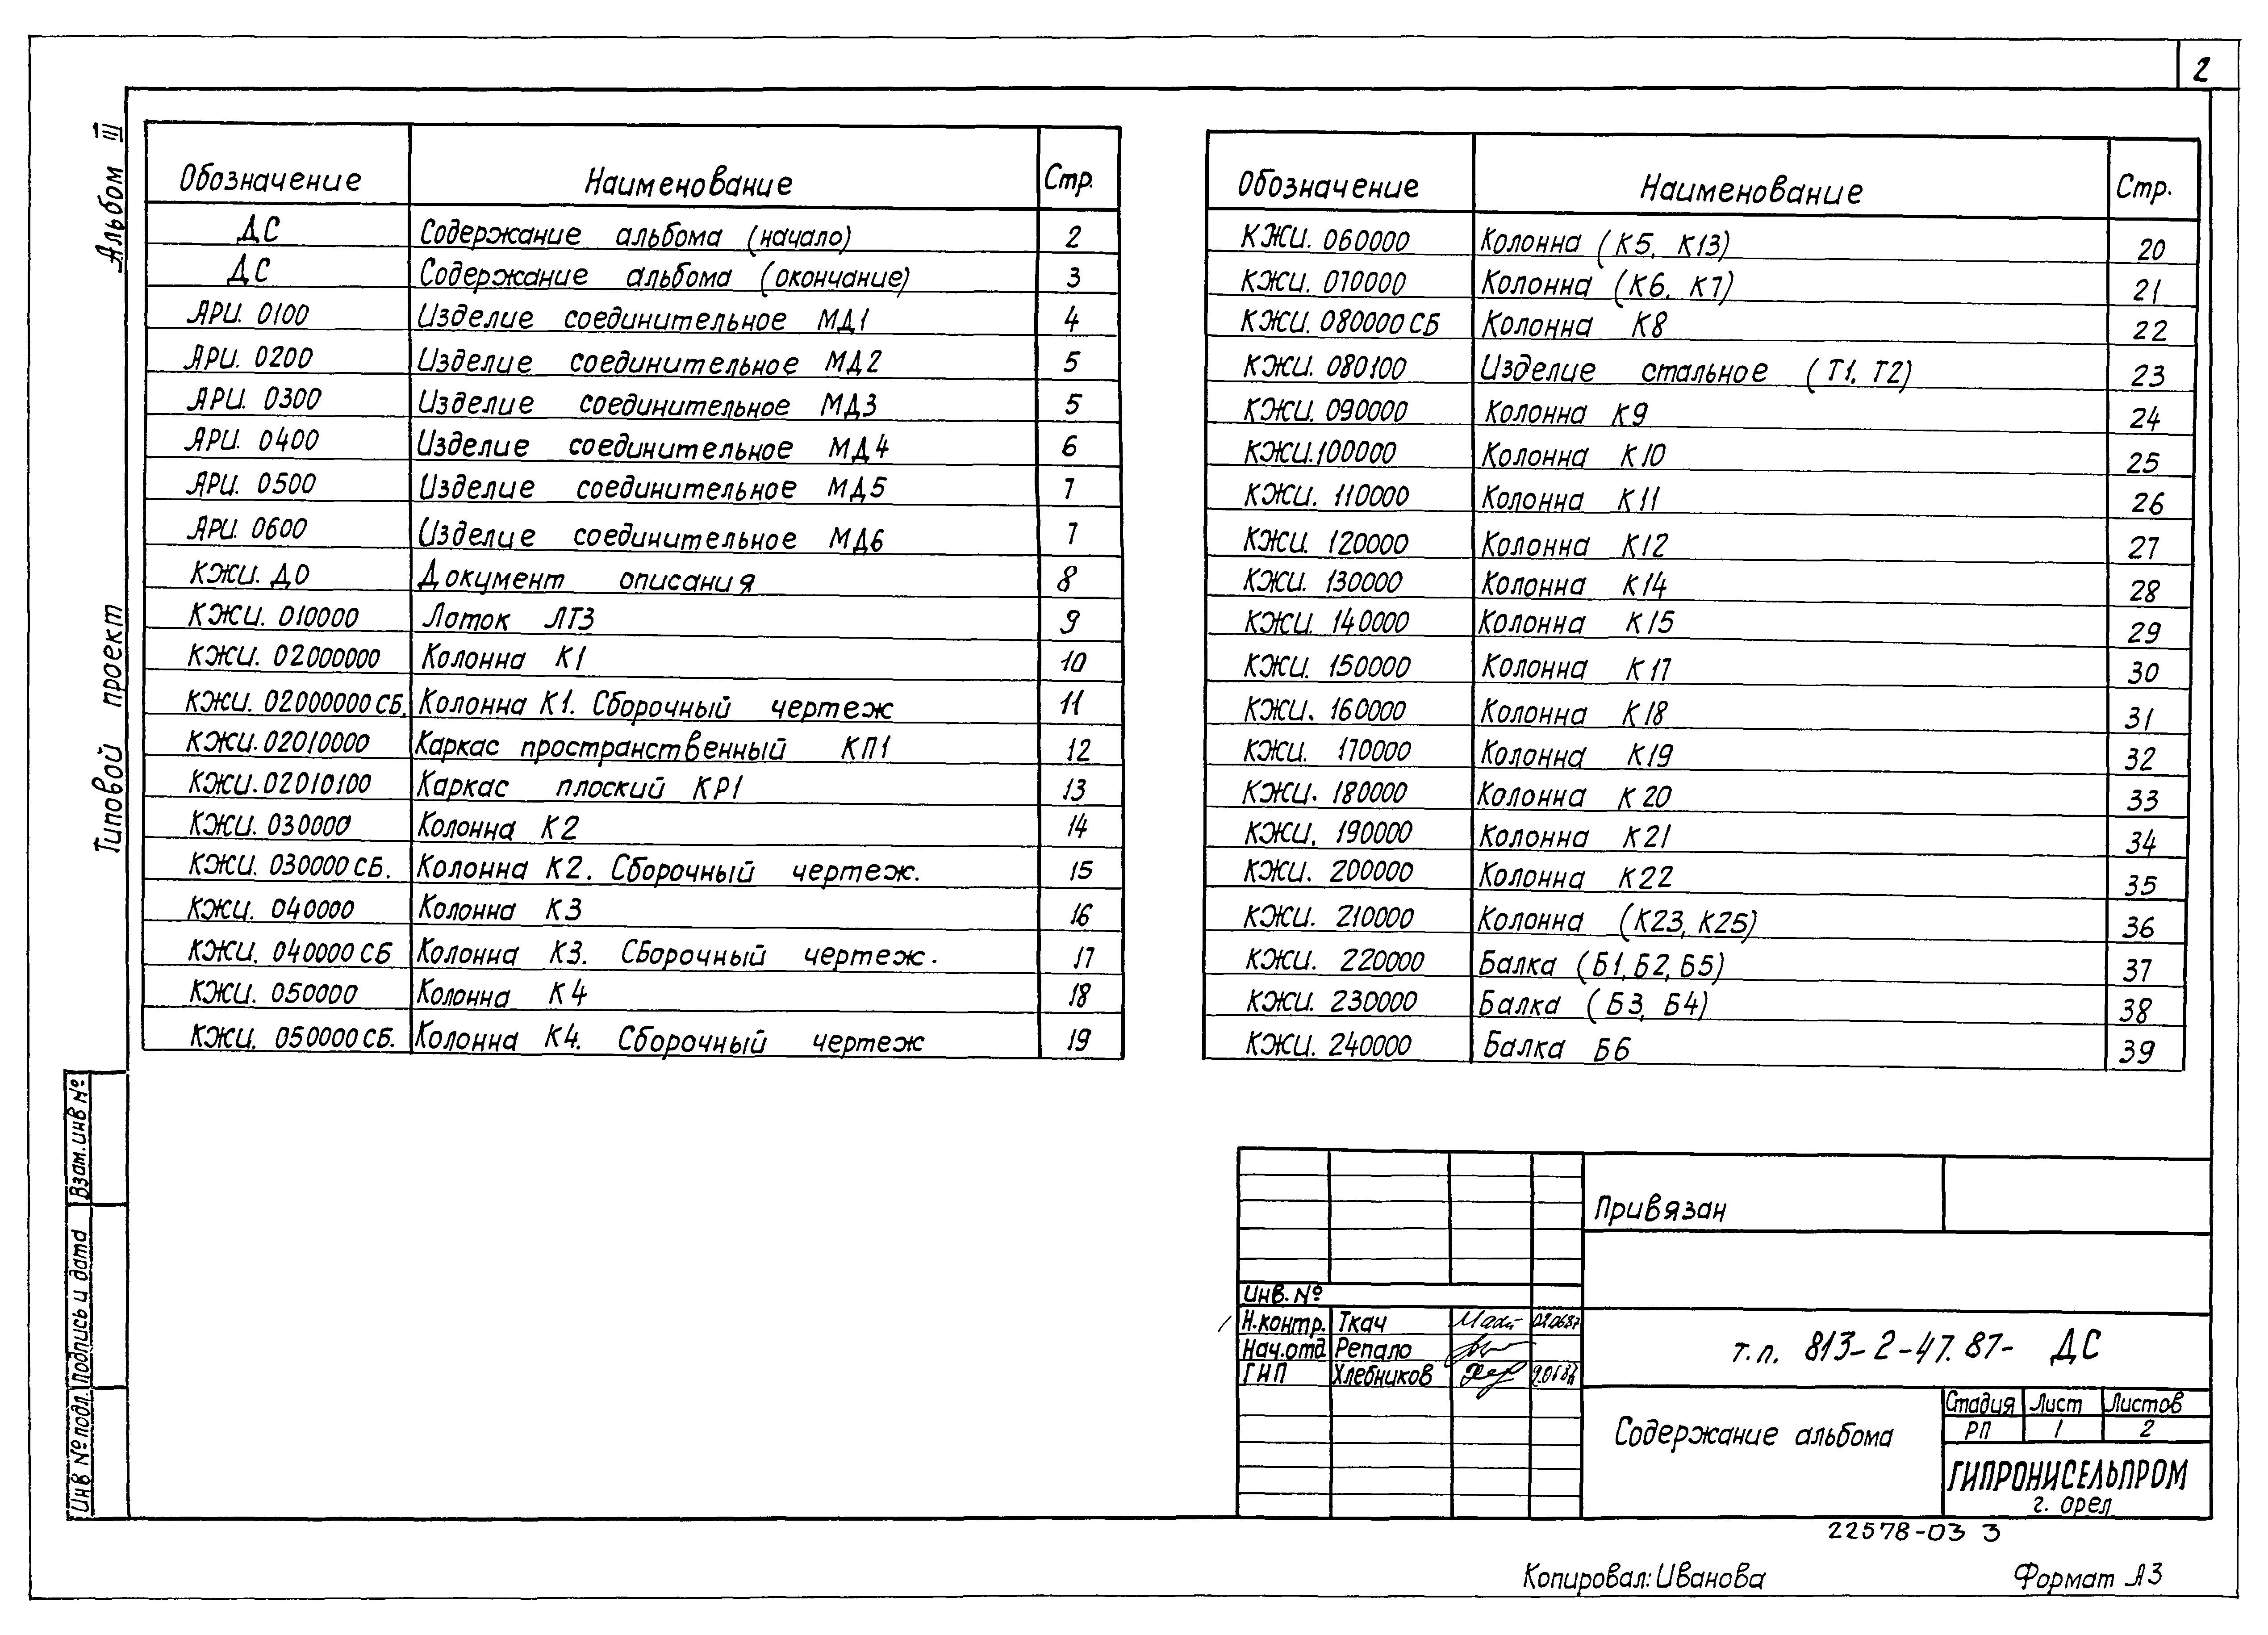 2
Альбом III
Типовой проект
Обозначение Наименование Стр.
ДС Содержание альбома (начало) 2
ДС Содержание альбома (окончание) 3
АРИ. 0100 Изделие соединительное МД1 4
АРИ. 0200 Изделие соединительное МД2 5
АРИ. 0300 Изделие соединительное МД3 5
АРИ. 0400 Изделие соединительное МД4 6
АРИ. 0500 Изделие соединительное МД5 7
АРИ. 0600 Изделие соединительное МД6 7
КЖИ. ДО Документ описания 8
КЖИ. 010000 Лоток ЛТ3 9
КЖИ. 02000000 Колонна К1 10
КЖИ. 02000000 СБ. Колонна К1. Сборочный чертеж 11
КЖИ. 02010000 Каркас пространственный КП1 12
КЖИ. 02010100 Каркас плоский КР1 13
КЖИ. 030000 Колонна К2 14
КЖИ. 030000 СБ. Колонна К2. Сборочный чертеж. 15
КЖИ. 040000 Колонна К3 16
КЖИ. 040000 СБ Колонна К3. Сборочный чертеж. 17
КЖИ. 050000 Колонна К4 18
КЖИ. 050000 СБ. Колонна К4. Сборочный чертеж 19
Обозначение Наименование Стр.
КЖИ. 060000 Колонна (К5, К13) 20
КЖИ. 070000 Колонна (К6, К7) 21
КЖИ. 080000 СБ Колонна К8 22
КЖИ. 080100 Изделие стальное (Т1, Т2) 23
КЖИ. 090000 Колонна К9 24
КЖИ.100000 Колонна К10 25
КЖИ. 110000 Колонна К11 26
КЖИ. 120000 Колонна К12 27
КЖИ. 130000 Колонна К14 28
КЖИ. 140000 Колонна К15 29
КЖИ. 150000 Колонна К17 30
КЖИ. 160000 Колонна К18 31
КЖИ. 170000 Колонна К19 32
КЖИ. 180000 Колонна К20 33
КЖИ. 190000 Колонна К21 34
КЖИ. 200000 Колонна К22 35
КЖИ. 210000 Колонна (К23, К25) 36
КЖИ. 220000 Балка (Б1, Б2, Б5) 37
КЖИ. 230000 Балка (Б3, Б4) 38
КЖИ. 240000 Балка Б6 39
Взам. инв №
Подпись и дата
Инв № подл.
Привязан
Инв. №
Н.контр. Ткач
Нач.отд Репало
ГИП Хлебников
т.п. 813-2-47.87- ДС
Содержание альбома
Стадия Лист Листов
РП 1 2
ГИПРОНИСЕЛЬПРОМ
г. Орел
22578-03 3
Копировал: Иванова
Формат А3